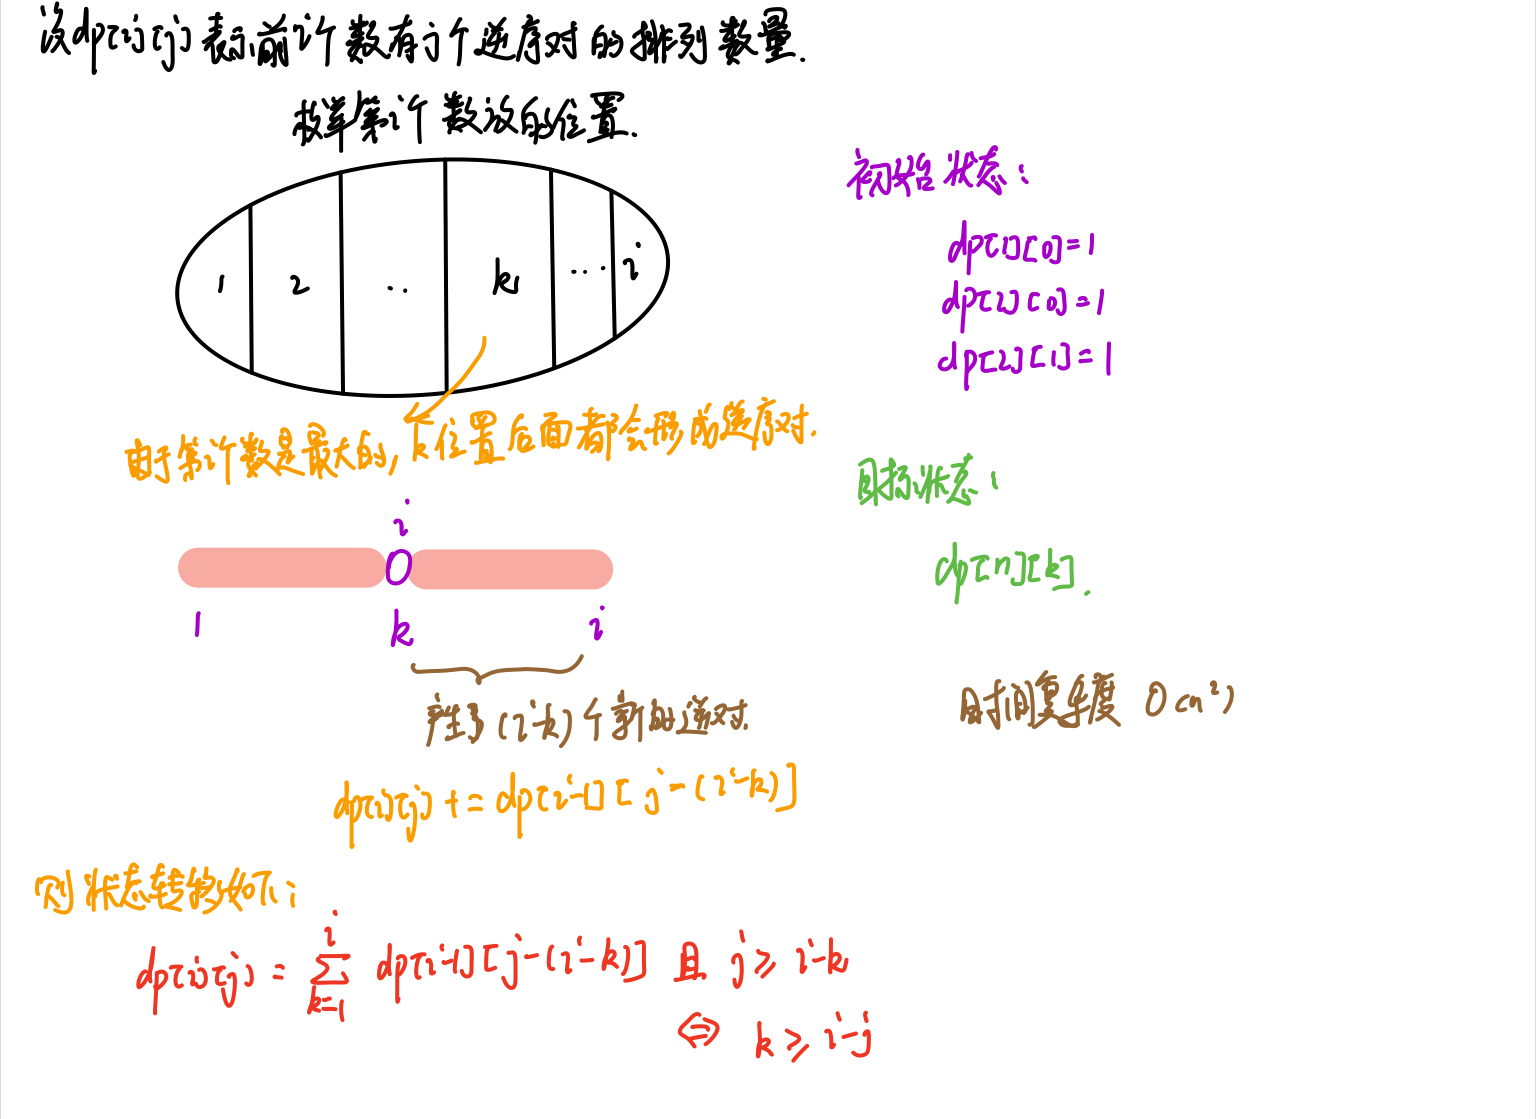 设dp[i][j]表示前i个数有j个逆序对的排列数量.
枚举第i个数放的位置.
1 2 .. k ... i
由于第i个数是最大的,k位置后面都会形成逆序对.
i
1 k i
产生了(i-k)个新的逆对.
dp[i][j] += dp[i-1][j-(i-k)]
则状态转移如下:
dp[i][j] = \sum_{k=1}^{i} dp[i-1][j-(i-k)] 且 j ≥ i-k
⇔ k ≥ i-j
初始状态:
dp[1][0]=1
dp[2][0]=1
dp[2][1]=1
目标状态:
dp[n][k].
时间复杂度 O(n²)